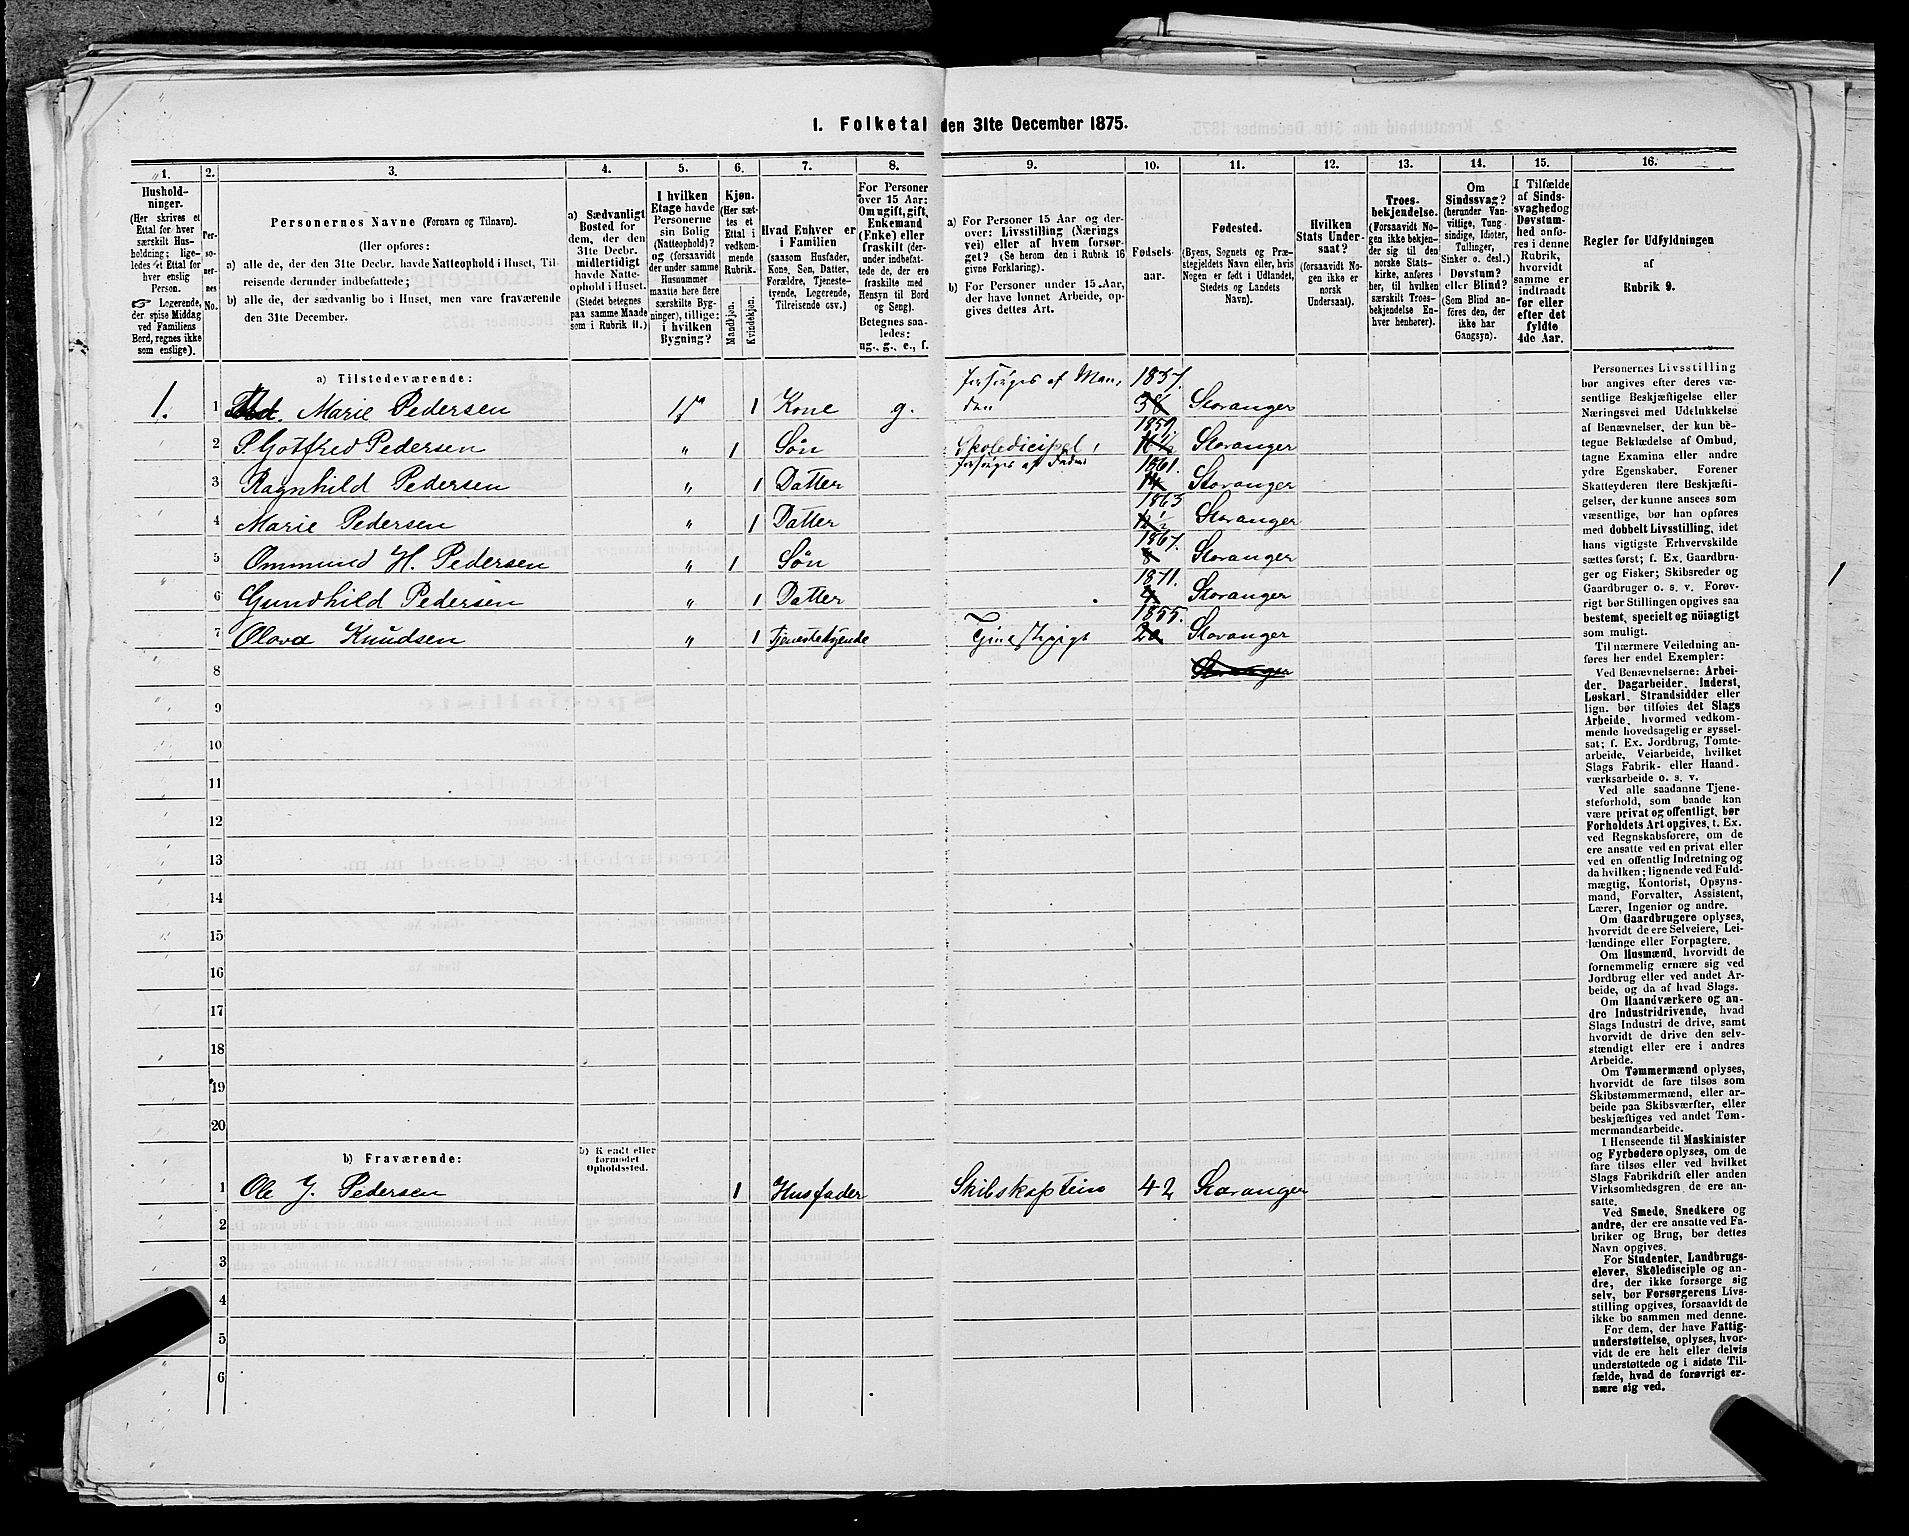 1. Folketal den 31te December 1875.
1. 2. 3. 4. 5. 6. 7. 8. 9. 10. 11. 12. 13. 14. 15. 16.
Hushold-
ninger.
(Her skrives et
Ettal for hver
særskilt Hus-
holdning; lige-
ledes et Ettal for
hver enslig
Person.
☞ Logerende,
der spise Middag
ved Familiens
Bord, regnes ikke
som enslige).
Per-
so-
ner-
nes
No.
Personernes Navne (Fornavn og Tilnavn).
(Her opføres:
a) alle de, der den 31te Decbr. havde Natteophold i Huset, Til-
reisende derunder indbefattede;
b) alle de, der sædvanlig bo i Huset, men vare fraværende
den 31te December.
a) Sædvanligt
Bosted for
dem, der den
31te Decbr.
midlertidigt
havde Natte-
ophold i Huset.
(Stedet betegnes
paa samme Maade
som i Rubrik 11.)
I hvilken
Etage havde
Personerne
sin Bolig
(Natteophold)?
og (forsaavidt
der under samme
Husnummer
maatte høre flere
særskilte Byg-
ninger), tillige:
i hvilken
Bygning?
Kjøn.
(Her sæt-
tes et
Ettal i
vedkom-
mende
Rubrik.
Mandkjøn.
Kvindekjøn.
Hvad Enhver er
i Familien
(saasom Husfader,
Kone, Søn, Datter,
Forældre, Tjeneste-
tyende, Logerende,
Tilreisende osv.)
For Personer
over 15 Aar:
Om ugift, gift,
Enkemand
(Enke) eller
fraskilt (der-
under indbefat-
tede de, der ere
fraskilte med
Hensyn til Bord
og Seng).
Betegnes saa-
ledes:
ug., g., e., f.
a) For Personer 15 Aar og der-
over: Livsstilling (Nærings
vei) eller af hvem forsør-
get? (Se herom den i Rubrik 16
givne Forklaring).
b) For Personer under 15 Aar,
der have lønnet Arbeide, op-
gives dettes Art.
Fødsels-
aar.
Fødested.
(Byens, Sognets og Præ-
stegjeldets Navn eller, hvis
Nogen er født i Udlandet,
Stedets og Landets
Navn).
Hvilken
Stats Under-
saat?
(forsaavidt No-
gen ikke er
norsk
Undersaat).
Troes-
bekjendelse.
(Forsaavidt No-
gen ikke bekjen-
der sig til den
norske Stats-
kirke, anføres
her, til hvilken
særskilt Troes-
bekjendelse En-
hver henhører).
Om
Sindssvag?
(herunder Van-
vittige, Tung-
sindige, Idioter,
Tullinger,
Sinker o. desl.)
Døvstum?
eller Blind?
(Som Blind an-
føres den, der
ikke har
Gangsyn).
I Tilfælde
af Sinds-
svaghed og
Døvstum-
hed anfø-
res i denne
Rubrik,
hvorvidt
samme er
indtraadt
før eller
efter det
fyldte
4de Aar.
Regler før Udfyldningen
af
Rubrik 9.
a) Tilstedeværende:
1. 1 Marie Pedersen 1 Kone g. forsørges af Man, den 1837. 38 Stavanger
2 P. Gotfred Pedersen " 1 Søn Skoledicipel, forsørges af Faderen 1859 Stavanger
3 Ragnhild Pedersen " 1 Datter 1861. 14 Stavanger
4 Marie Pedersen " 1 Datter 1863 12½ Stavanger
5 Ommund H. Pedersen " 1 Søn 1867. 8 Stavanger
6 Gundhild Pedersen " 1 Datter 1871. 4 Stavanger
7 Olava Knudsen " 1 Tjenestetyende Tjenestepige 1855. 20 Stavanger
8 Stavanger
9
10
11
12
13
14
15
16
17
18
19
20
b) Fraværende:
b) Kjendt eller
formodet
Opholdssted.
1 Ole J. Pedersen 1 Husfader Skibskaptein 42 Stavanger
2
3
4
5
6
Personernes Livsstilling
bør angives efter deres væ-
sentlige Beskjæftigelse eller
Næringsvei med Udelukkelse
af Benævnelser, der kun be-
tegne Beklædelse af Ombud,
tagne Examina eller andre
ydre Egenskaber. Forener
Skatteyderen flere Beskjæfti-
gelser, der kunne ansees som
væsentlige, bør han opføres
med dobbelt Livsstilling, idet
hans vigtigste Erhvervskilde
sættes først; f. Ex. Gaardbru-
ger og Fisker; Skibsreder og
Gaardbruger o. s. v. Forøv-
rigt bør Stillingen opgives saa
bestemt, specielt og nøiagtigt
som muligt.
Til nærmere Veiledning an-
føres her endel Exempler:
Ved Benævnelserne: Arbei-
der, Dagarbeider, Inderst,
Løskarl, Strandsidder eller
lign. bør tilføies det Slags
Arbeide, hvormed vedkom-
mende hovedsagelig er syssel-
sat; f. Ex. Jordbrug, Tomte-
arbeide, Veiarbeide, hvilket
Slags Fabrik- eller Haand-
værksarbeide o. s. v.
Ved alle saadanne Tjene-
steforhold, som baade kan
være privat og offentligt, bør
Forholdets Art opgives, t. Ex.
ved Regnskabsførere, om de
ere ansatte ved en privat eller
ved en offentlig Indretning og
da hvilken; lignende ved Fuld-
mægtig, Kontorist, Opsyns-
mand, Forvalter, Assistent,
Lærer, Ingeniør og andre.
Om Gaardbrugere oplyses,
hvorvidt de ere Selveiere, Lei-
lændinge eller Forpagtere.
Om Husmænd, hvorvidt de
fornemmelig ernære sig ved
Jordbrug eller ved andet Ar-
beide, og da af hvad Slags.
Om Haandværkere og an-
dre Industridrivende, hvad
Slags Industri de drive, samt
hvorvidt de drive den selv-
stændigt eller ere i andres
Arbeide.
Om Tømmermænd oplyses,
hvorvidt de fare tilsøs som
Skibstømmermænd, eller ar-
beide paa Skibsværfter, eller
beskjæftiges ved andet Tøm-
mermandsarbeide.
I Henseende til Maskinister
og Fyrbødere oplyses, om de
fare tilsøs eller ved hvilket
Slags Fabrikdrift eller anden
Virksomhedsgren de ere an-
satte.
Ved Smede, Snedkere og
andre, der ere ansatte ved Fa-
briker og Brug, bør dettes
Navn opgives.
For Studenter, Landbrugs-
elever, Skoledisciple og an-
dre, der ikke forsørge sig
selv, bør Forsørgerens Livs-
stilling opgives, forsaavidt de
ikke bo sammen med denne.
For dem, der have Fattig-
understøttelse, oplyses, hvor-
vidt de ere helt eller delvis
understøttede og i sidste Til-
fælde, hvad de forøvrigt er-
nære sig ved.